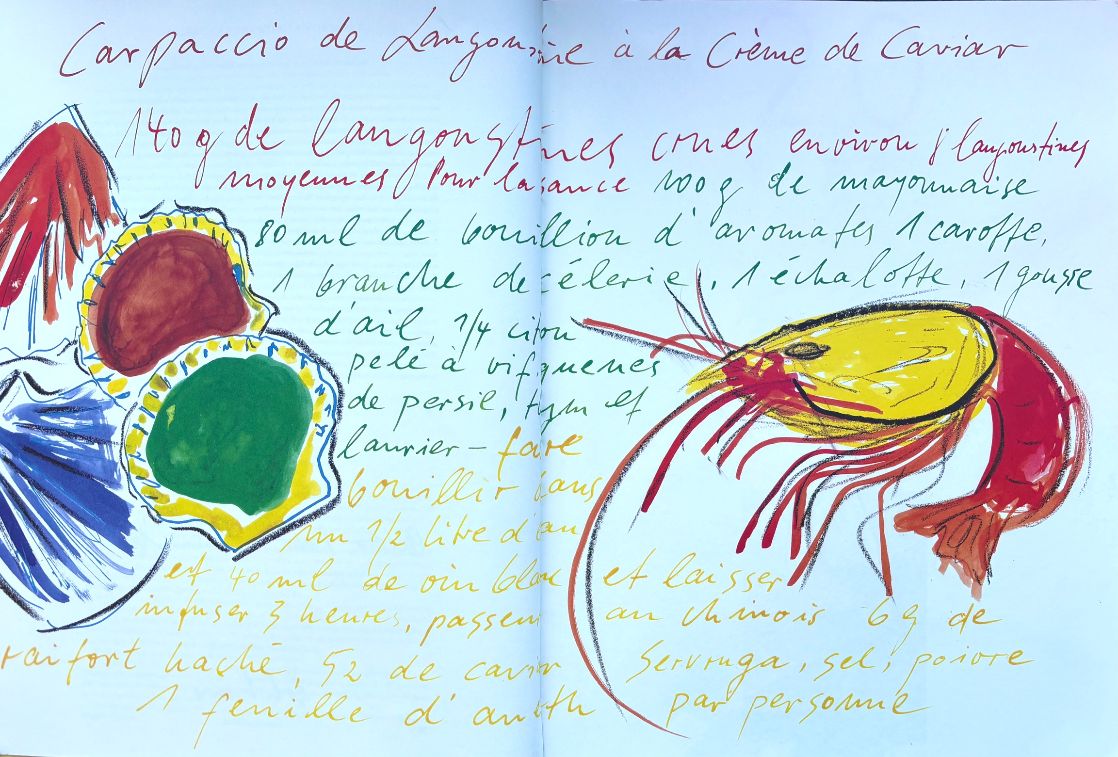 Carpaccio de Langoustine à la Crème de Caviar
140 g de langoustines crues environ langoustines
moyennes Pour la sauce 100 g de mayonnaise
80 ml de bouillion d'aromates 1 caroffe,
1 branche de célerie, 1 échalotte, 1 gousse
d'ail, 1/4 citon
pelé à vif quenes
de persil, tym et
laurier – faire
bouillir dans
un 1/2 litre d'eau
et 40 ml de vin blanc et laisser
infuser 3 heures, passem au chinois 6 g de
raifort haché, 52 de caviar Servruga, sel, poivre
1 feuille d'aneth par personne